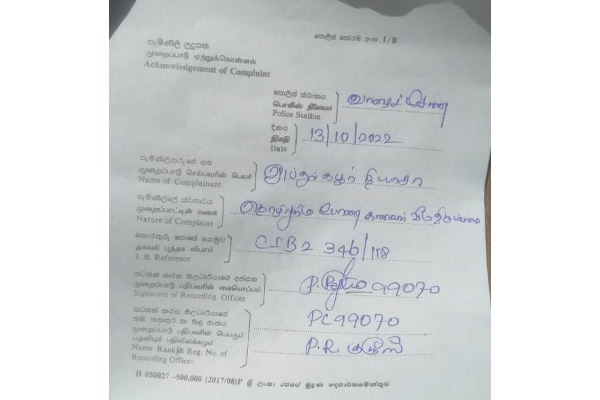 පොලිස් පෝරම අංක. I/B
පැමිණිලි ලදුපත
முறைப்பாடு ஏற்றுக்கொள்ளல்
Acknowledgement of Complaint
පොලිස් ස්ථානය
பொலிஸ் நிலையம்
Police Station
வாழைச்சேனை
දිනය
திகதி
Date
13/10/2022
පැමිණිලිකරුගේ නම
முறைப்பாடு செய்பவரின் பெயர்
Name of Complainant
அப்துல்
පැමිණිල්ලේ ස්වභාවය
முறைப்பாட்டின் வகை
Nature of Complaint
போன கணவர்
තොරතුරු පොතේ යොමුව
தகவல் புத்தக விபரம்
I. B. Reference
CIB2 346/118
සටහන් කරන නිලධාරියාගේ අත්සන
முறைப்பாடு பதிபவரின் கையொப்பம்
Signature of Recording Officer
99070
සටහන් කරන නිලධාරියාගේ
නම, තනතුර හා නිල අංකය
முறைப்பாடு பதிபவரின் பெயரும்
பதவியும் பதிவிலக்கமும்
Name Rank & Reg. No. of
Recording Officer
PC99070
P.R
H 050027 -500,000 (2017/08)P ශ්‍රී ලංකා රජයේ මුද්‍රණ දෙපාර්තමේන්තුව